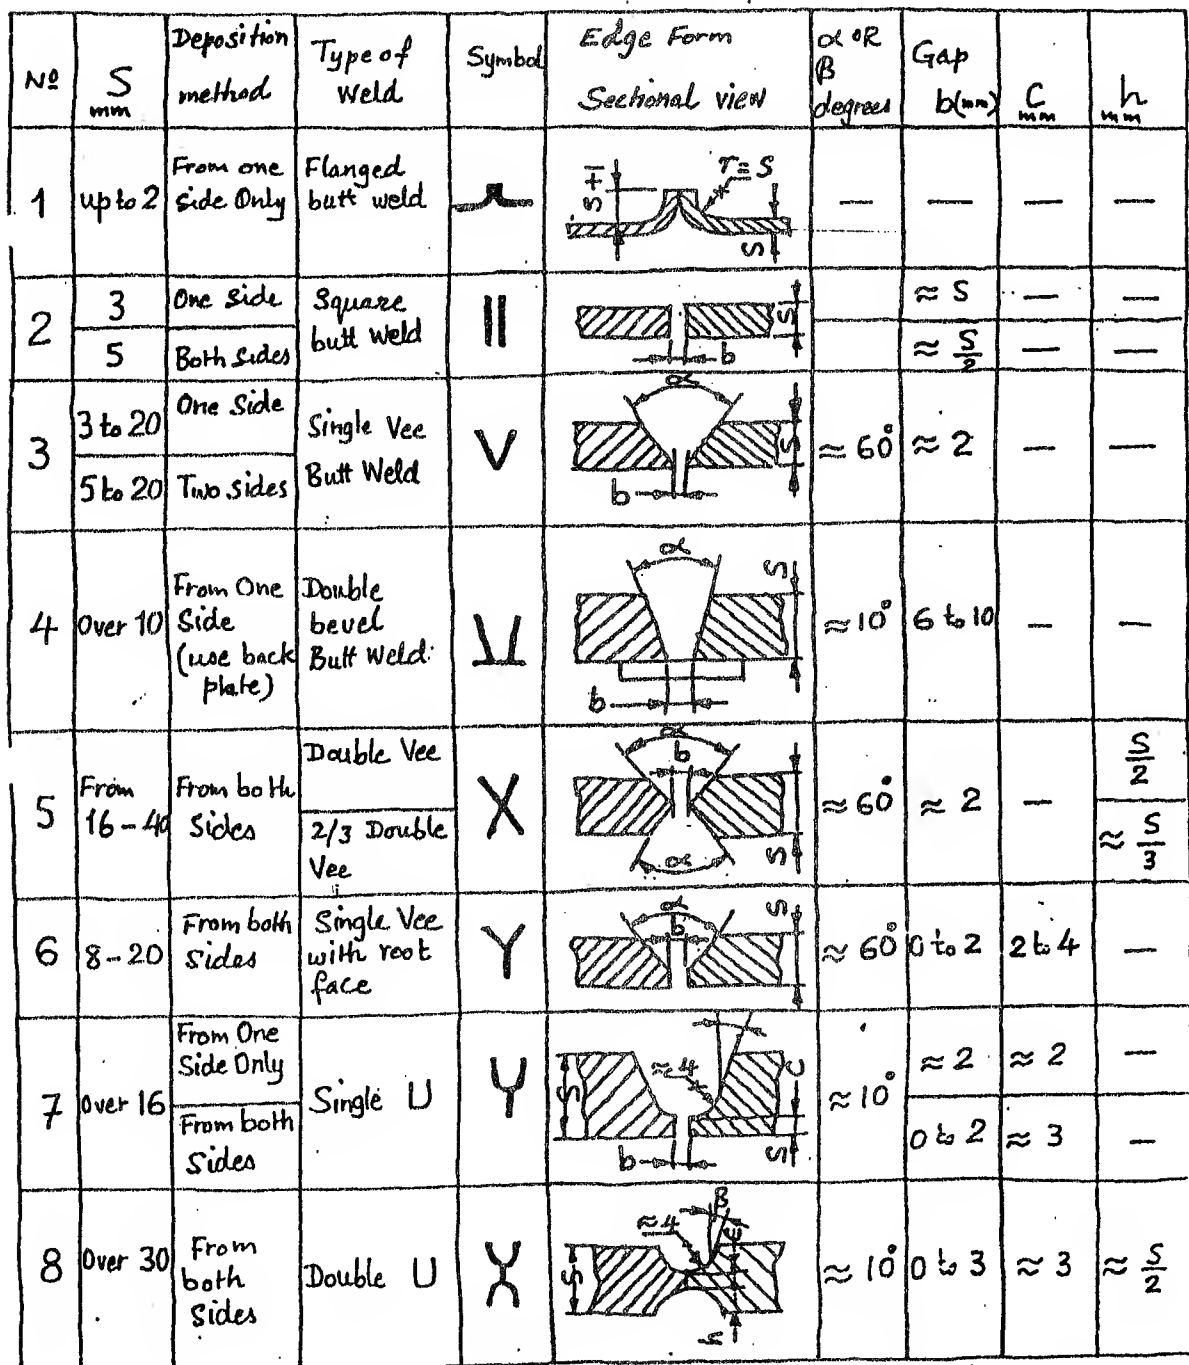 Nº
S
mm
Deposition
method
Type of
Weld
Symbol
Edge Form
Sectional view
α OR
β
degrees
Gap
b(mm)
C
mm
h
mm
1
up to 2
From one
Side Only
Flanged
butt weld
S+1
r=S
S
—
—
—
—
2
3
One side
Square
butt weld
S
b
≈ S
—
—
5
Both sides
≈ S/2
—
—
3
3 to 20
One Side
Single Vee
Butt Weld
α
S
b
≈ 60°
≈ 2
—
—
5 to 20
Two sides
4
Over 10
From One
Side
(use back
plate)
Double
bevel
Butt Weld
α
S
b
≈ 10°
6 to 10
—
—
5
From
16 - 40
From both
Sides
Double Vee
2/3 Double
Vee
α
b
S
α
≈ 60°
≈ 2
—
S/2
≈ S/3
6
8 - 20
From both
Sides
Single Vee
with root
face
α
b
S
≈ 60°
0 to 2
2 to 4
—
7
Over 16
From One
Side Only
From both
Sides
Single U
≈4
S
C
b
S
≈ 10°
≈ 2
≈ 2
—
0 to 2
≈ 3
—
8
Over 30
From
both
Sides
Double U
β
≈4
S
h
≈ 10°
0 to 3
≈ 3
≈ S/2